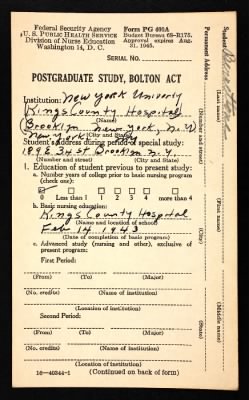 Federal Security Agency
U. S. PUBLIC HEALTH SERVICE
Division of Nurse Education
Washington 14, D. C.
Form PG 401A
Budget Bureau 68–R175.
Approval expires Aug.
31, 1945.
SERIAL NO.
POSTGRADUATE STUDY, BOLTON ACT
Institution: New York University
Kings County Hospital
(Name)
Brooklyn New York, N.Y
New York
(City and State)
Student's address during period of special study:
1898 34 St Brooklyn N.Y.
(Number and street) (City and State)
1. Education of student previous to present study:
a. Number years of college prior to basic nursing program
(check one):
0 Less than 1 1 2 3 4 4+
b. Basic nursing education:
Kings County Hospital
(Name and location of school)
Feb 14 1943
(Date of completion of basic program)
c. Advanced study (nursing and other), exclusive of
present program:
First Period:
(From) (To) (Major)
(No. credits) (Name of institution)
(Location of institution)
Second Period:
(From) (To) (Major)
(No. credits) (Name of institution)
(Location of institution)
16—40244-1 (Continued on back of form)
Student
(Last name)
(First name)
(Middle name)
Permanent Address
(Number and street)
(City)
(State)